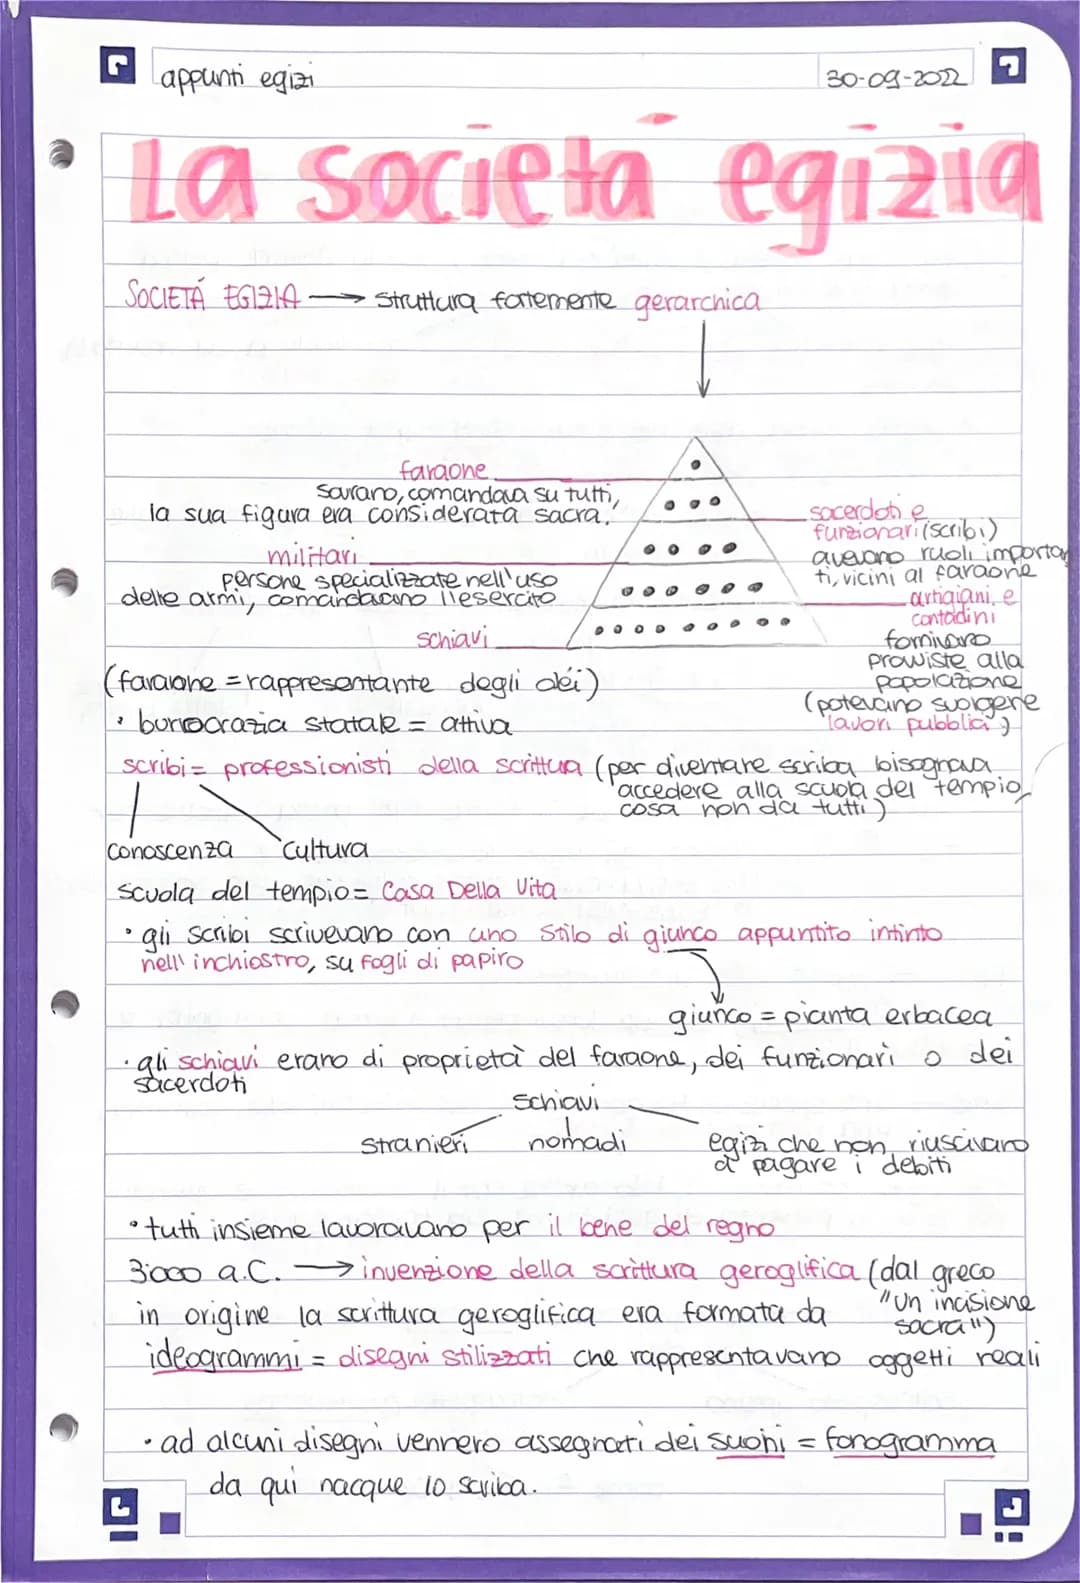 appunti egizi
30-09-2022
La società egizia
SOCIETÁ EGIZIA → struttura fortemente gerarchica
faraone
sovrano, comandava su tutti,
la sua figura era considerata sacra.
sacerdoti e
funzionari (scribi)
avevano ruoli importan
ti, vicini al faraone
militari
persone specializzate nell'uso
delle armi, comandavano l'esercito
artigiani e
contadini
fornivano
provviste alla
popolazione
(potevano svolgere
lavori pubblici)
schiavi
(faraone = rappresentante degli dèi)
• burocrazia statale = attiva
scribi = professionisti della scrittura (per diventare scriba bisognava
accedere alla scuola del tempio,
cosa non da tutti)
conoscenza cultura
scuola del tempio = Casa Della Vita
• gli scribi scrivevano con uno stilo di giunco appuntito intinto
nell'inchiostro, su fogli di papiro
giunco = pianta erbacea
• gli schiavi erano di proprietà del faraone, dei funzionari o dei
sacerdoti
schiavi
stranieri nomadi egizi che non riuscivano
a pagare i debiti
• tutti insieme lavoravano per il bene del regno
3000 a.C. → invenzione della scrittura geroglifica (dal greco
"un incisione
sacra")
in origine la scrittura geroglifica era formata da
ideogrammi = disegni stilizzati che rappresentavano oggetti reali
• ad alcuni disegni vennero assegnati dei suoni = fonogramma
da qui nacque lo scriba.